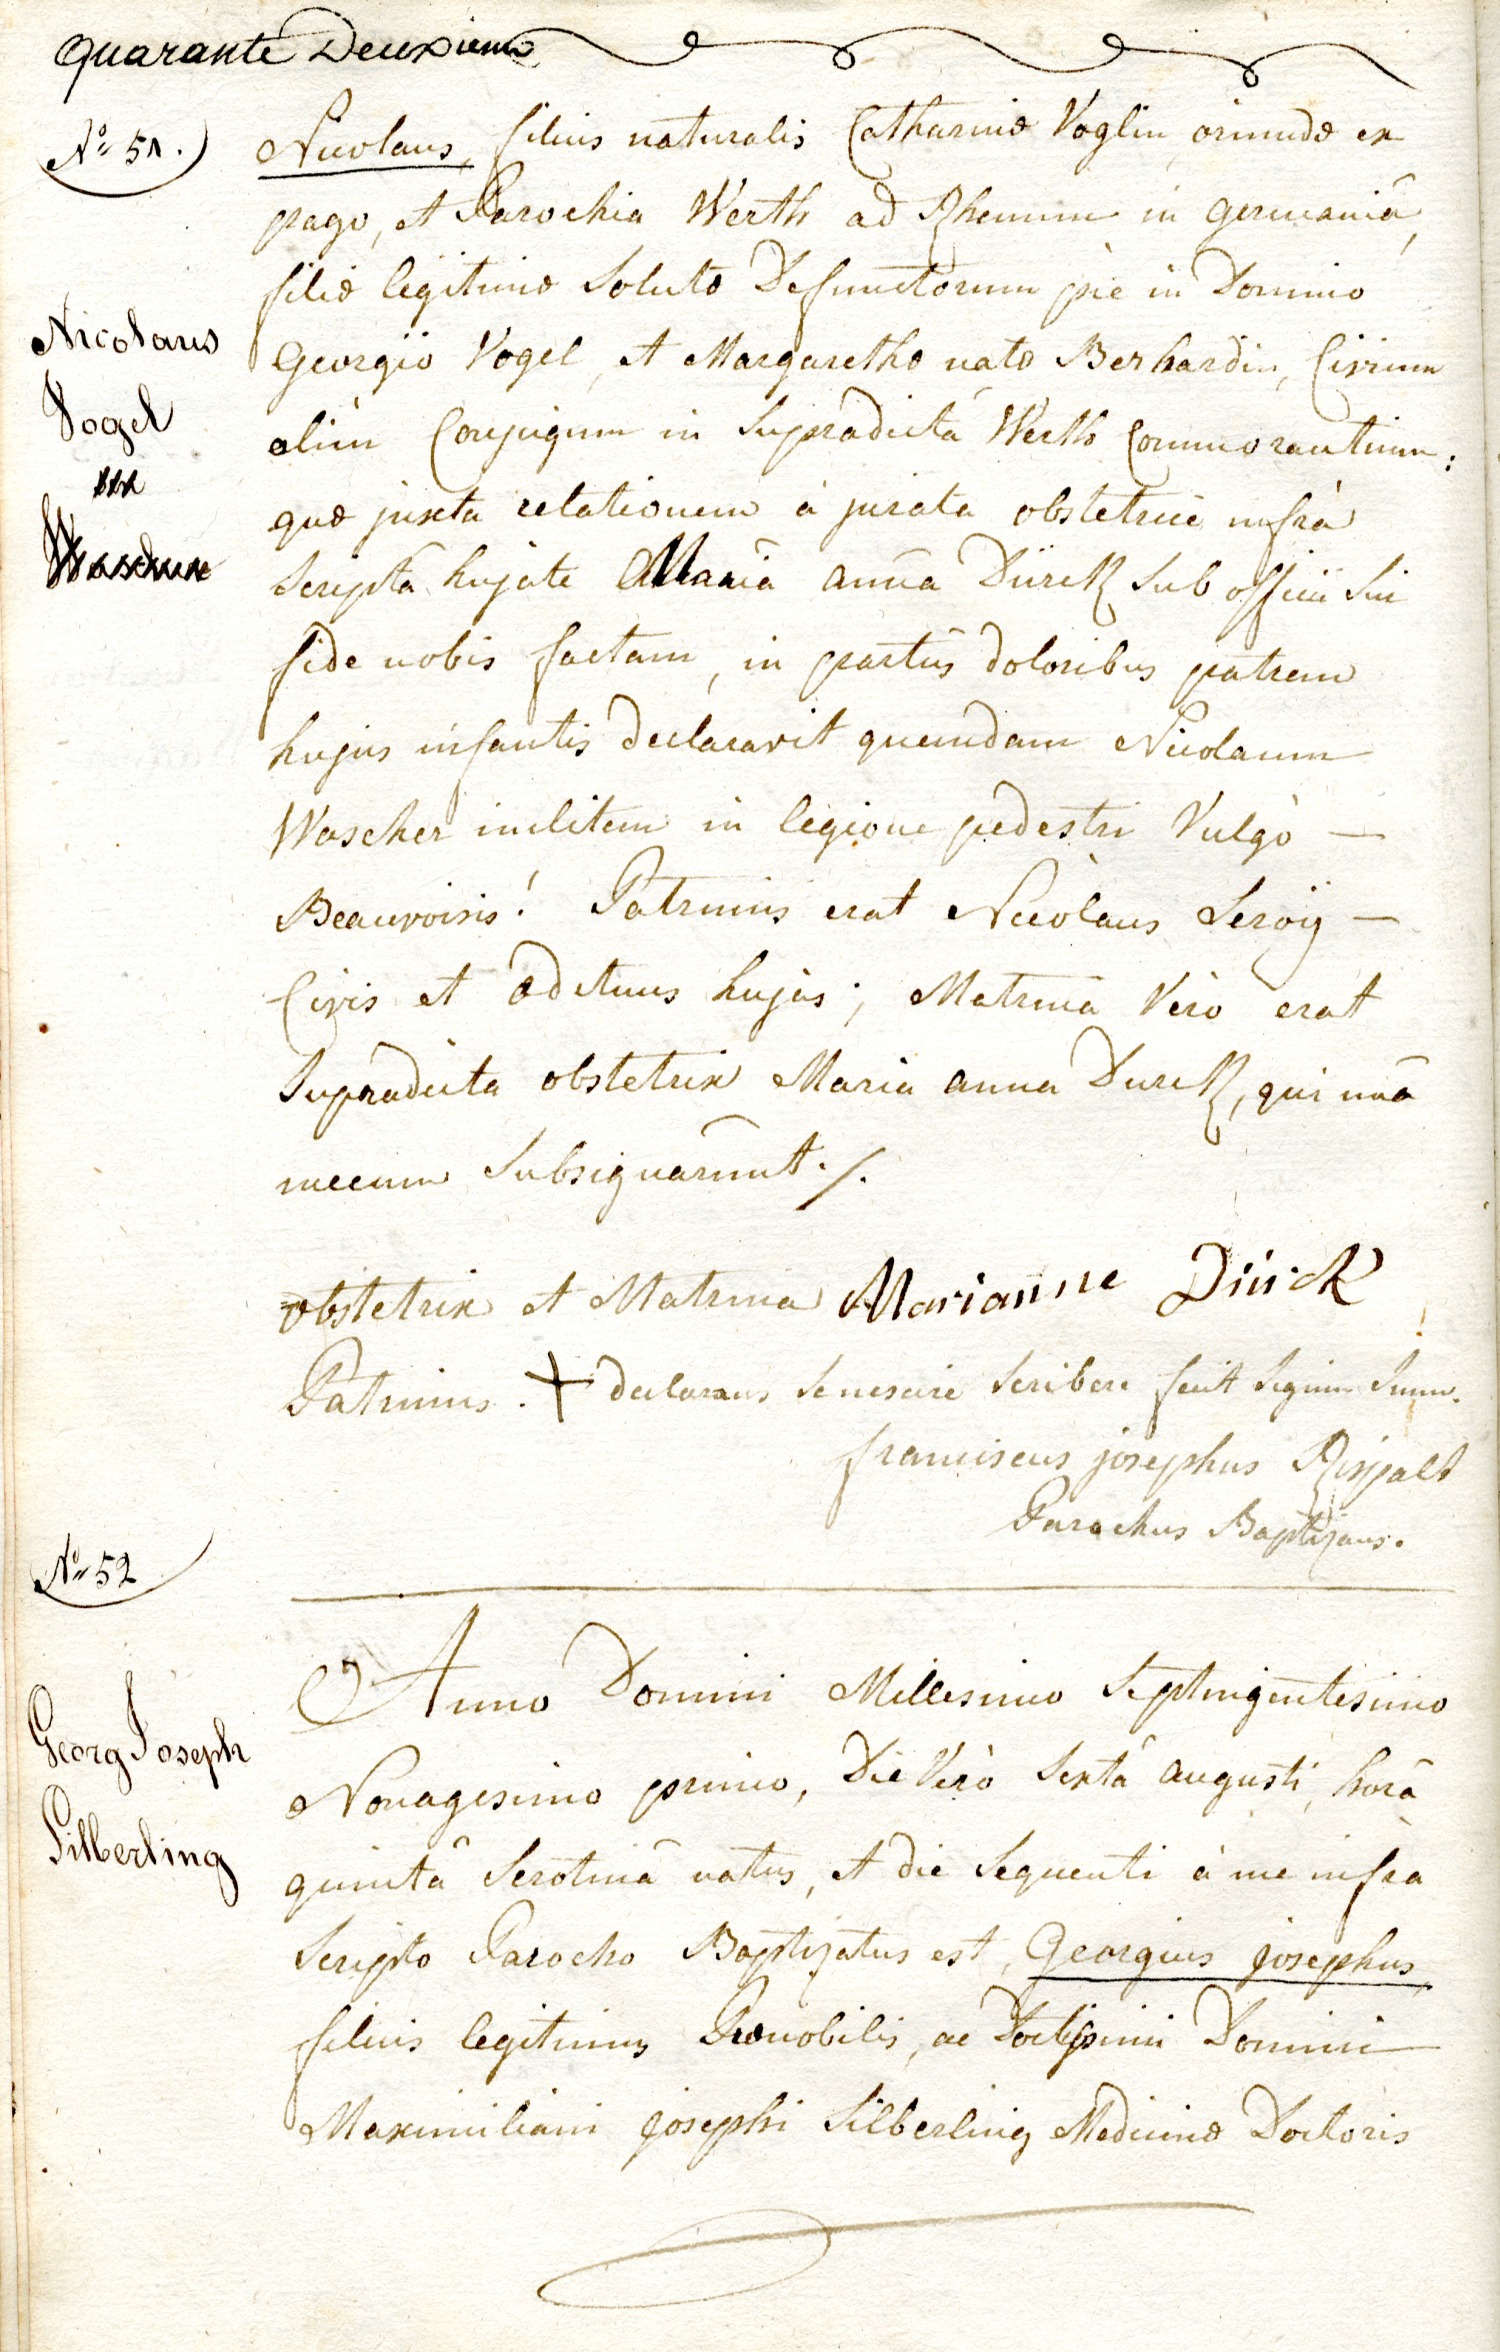 quarante Deuxieme
N° 51.
Nicolaus, filius naturalis Catharinæ Voglin, oriundæ ex
pago, et Parochia Werth ad Rhenum in germaniâ,
filiæ legitimæ Solutæ Defunctorum piè in Domino
Nicolaus
Georgii Vogel, et Margarethæ natæ Berhardin, Civium
Vogel
olim Conjugum in Supradictâ Werth Commorantium:
quæ juxta relationem à jurata obstetrice infrà
Scriptâ hujate Mariâ annâ Dürck Sub officii Sui
fide nobis factam, in partûs doloribus patrem
hujus infantis declaravit quemdam Nicolaum
Wascher militem in legione pedestri Vulgò —
Beauvoisis! Patrinus erat Nicolaus Leroÿ —
Civis et ædituus hujas; Matrina Verò erat
Supradicta obstetrix Maria anna Durck, qui unâ
mecum Subsignârunt ./.
obstetrix et Matrina Marianne Dürck
Patrinus. + declarans Se nescire Scribere fecit Signum Suum.
franciscus josephus Rispalt
Parochus Baptizans.
N° 52
Anno Domini Millesimo Septingentesimo
Georg Joseph
Nonagesimo primo, Die Verò Sextâ augusti, horâ
Silberling
quintâ Serotinâ natus, et die Sequenti à me infra
Scripto Parocho Baptizatus est, Georgius josephus,
filius legitimus Prænobilis, ac Doctissimi Domini
Maximiliani josephi Silberling Medicinæ Doctoris